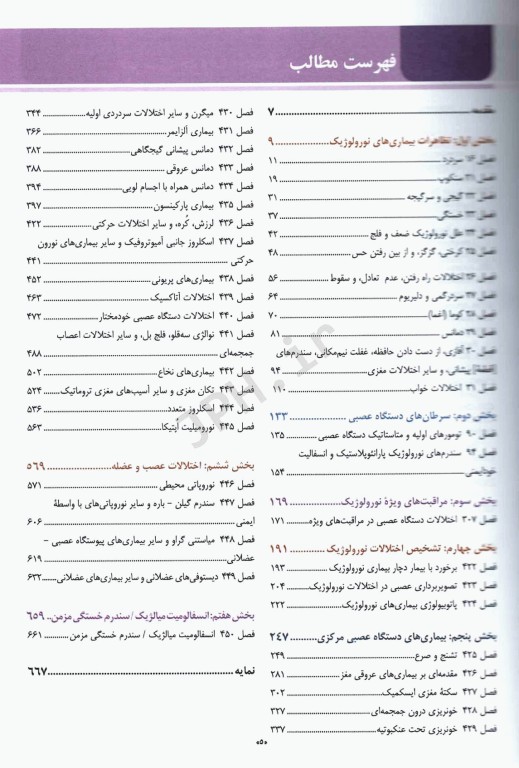 فهرست مطالب
مقدمه ۷
بخش اول: تظاهرات بیماری‌های نورولوژیک ۹
فصل ۱۶ سردرد ۱۱
فصل ۲۱ سنکوپ ۱۹
فصل ۲۲ گیجی و سرگیجه ۳۱
فصل ۲۳ خستگی ۳۷
فصل ۲۴ علل نورولوژیک ضعف و فلج ۴۲
فصل ۲۵ کرختی، گزگز، و از بین رفتن حس ۴۸
فصل ۲۶ اختلالات راه رفتن، عدم تعادل، و سقوط ۵۶
فصل ۲۷ سردرگمی و دلیریوم ۶۴
فصل ۲۸ کوما (اغما) ۷۰
فصل ۲۹ دمانس ۸۱
فصل ۳۰ آفازی، از دست دادن حافظه، غفلت نیم‌مکانی، سندرم‌های
پیشانی، و سایر اختلالات مغزی ۹۴
فصل ۳۱ اختلالات خواب ۱۱۰
بخش دوم: سرطان‌های دستگاه عصبی ۱۳۳
فصل ۹۰ تومورهای اولیه و متاستاتیک دستگاه عصبی ۱۳۵
فصل ۹۴ سندرم‌های نورولوژیک پارانئوپلاستیک و انسفالیت
خودایمنی ۱۵۴
بخش سوم: مراقبت‌های ویژهٔ نورولوژیک ۱۶۹
فصل ۳۰۷ اختلالات دستگاه عصبی در مراقبت‌های ویژه ۱۷۱
بخش چهارم: تشخیص اختلالات نورولوژیک ۱۹۱
فصل ۴۲۲ برخورد با بیمار دچار بیماری نورولوژیک ۱۹۳
فصل ۴۲۳ تصویربرداری عصبی در اختلالات نورولوژیک ۲۰۴
فصل ۴۲۴ پاتوبیولوژی بیماری‌های نورولوژیک ۲۲۲
بخش پنجم: بیماری‌های دستگاه عصبی مرکزی ۲۴۷
فصل ۴۲۵ تشنج و صرع ۲۴۹
فصل ۴۲۶ مقدمه‌ای بر بیماری‌های عروقی مغز ۲۸۱
فصل ۴۲۷ سکتهٔ مغزی ایسکمیک ۳۰۲
فصل ۴۲۸ خونریزی درون جمجمه‌ای ۳۲۷
فصل ۴۲۹ خونریزی تحت عنکبوتیه ۳۳۷
فصل ۴۳۰ میگرن و سایر اختلالات سردردی اولیه ۳۴۴
فصل ۴۳۱ بیماری آلزایمر ۳۶۶
فصل ۴۳۲ دمانس پیشانی گیجگاهی ۳۸۲
فصل ۴۳۳ دمانس عروقی ۳۸۸
فصل ۴۳۴ دمانس همراه با اجسام لویی ۳۹۴
فصل ۴۳۵ بیماری پارکینسون ۳۹۷
فصل ۴۳۶ لرزش، کُره، و سایر اختلالات حرکتی ۴۲۲
فصل ۴۳۷ اسکلروز جانبی آمیوتروفیک و سایر بیماری‌های نورون
حرکتی ۴۴۱
فصل ۴۳۸ بیماری‌های پریونی ۴۵۲
فصل ۴۳۹ اختلالات آتاکسیک ۴۶۳
فصل ۴۴۰ اختلالات دستگاه عصبی خودمختار ۴۷۲
فصل ۴۴۱ نورالژی سه‌قلو، فلج بل، و سایر اختلالات اعصاب
جمجمه‌ای ۴۸۸
فصل ۴۴۲ بیماری‌های نخاع ۵۰۲
فصل ۴۴۳ تکان مغزی و سایر آسیب‌های مغزی تروماتیک ۵۲۴
فصل ۴۴۴ اسکلروز متعدد ۵۳۶
فصل ۴۴۵ نورومیلیت اُپتیکا ۵۶۳
بخش ششم: اختلالات عصب و عضله ۵۶۹
فصل ۴۴۶ نوروپاتی محیطی ۵۷۱
فصل ۴۴۷ سندرم گیلن - باره و سایر نوروپاتی‌های با واسطهٔ
ایمنی ۶۰۶
فصل ۴۴۸ میاستنی گراو و سایر بیماری‌های پیوستگاه عصبی -
عضلانی ۶۱۹
فصل ۴۴۹ دیستوفی‌های عضلانی و سایر بیماری‌های عضلانی ۶۳۲
بخش هفتم: انسفالومیت میالژیک / سندرم خستگی مزمن ۶۵۹
فصل ۴۵۰ انسفالومیت میالژیک / سندرم خستگی مزمن ۶۶۱
نمایه ۶۶۷
JPH.ir